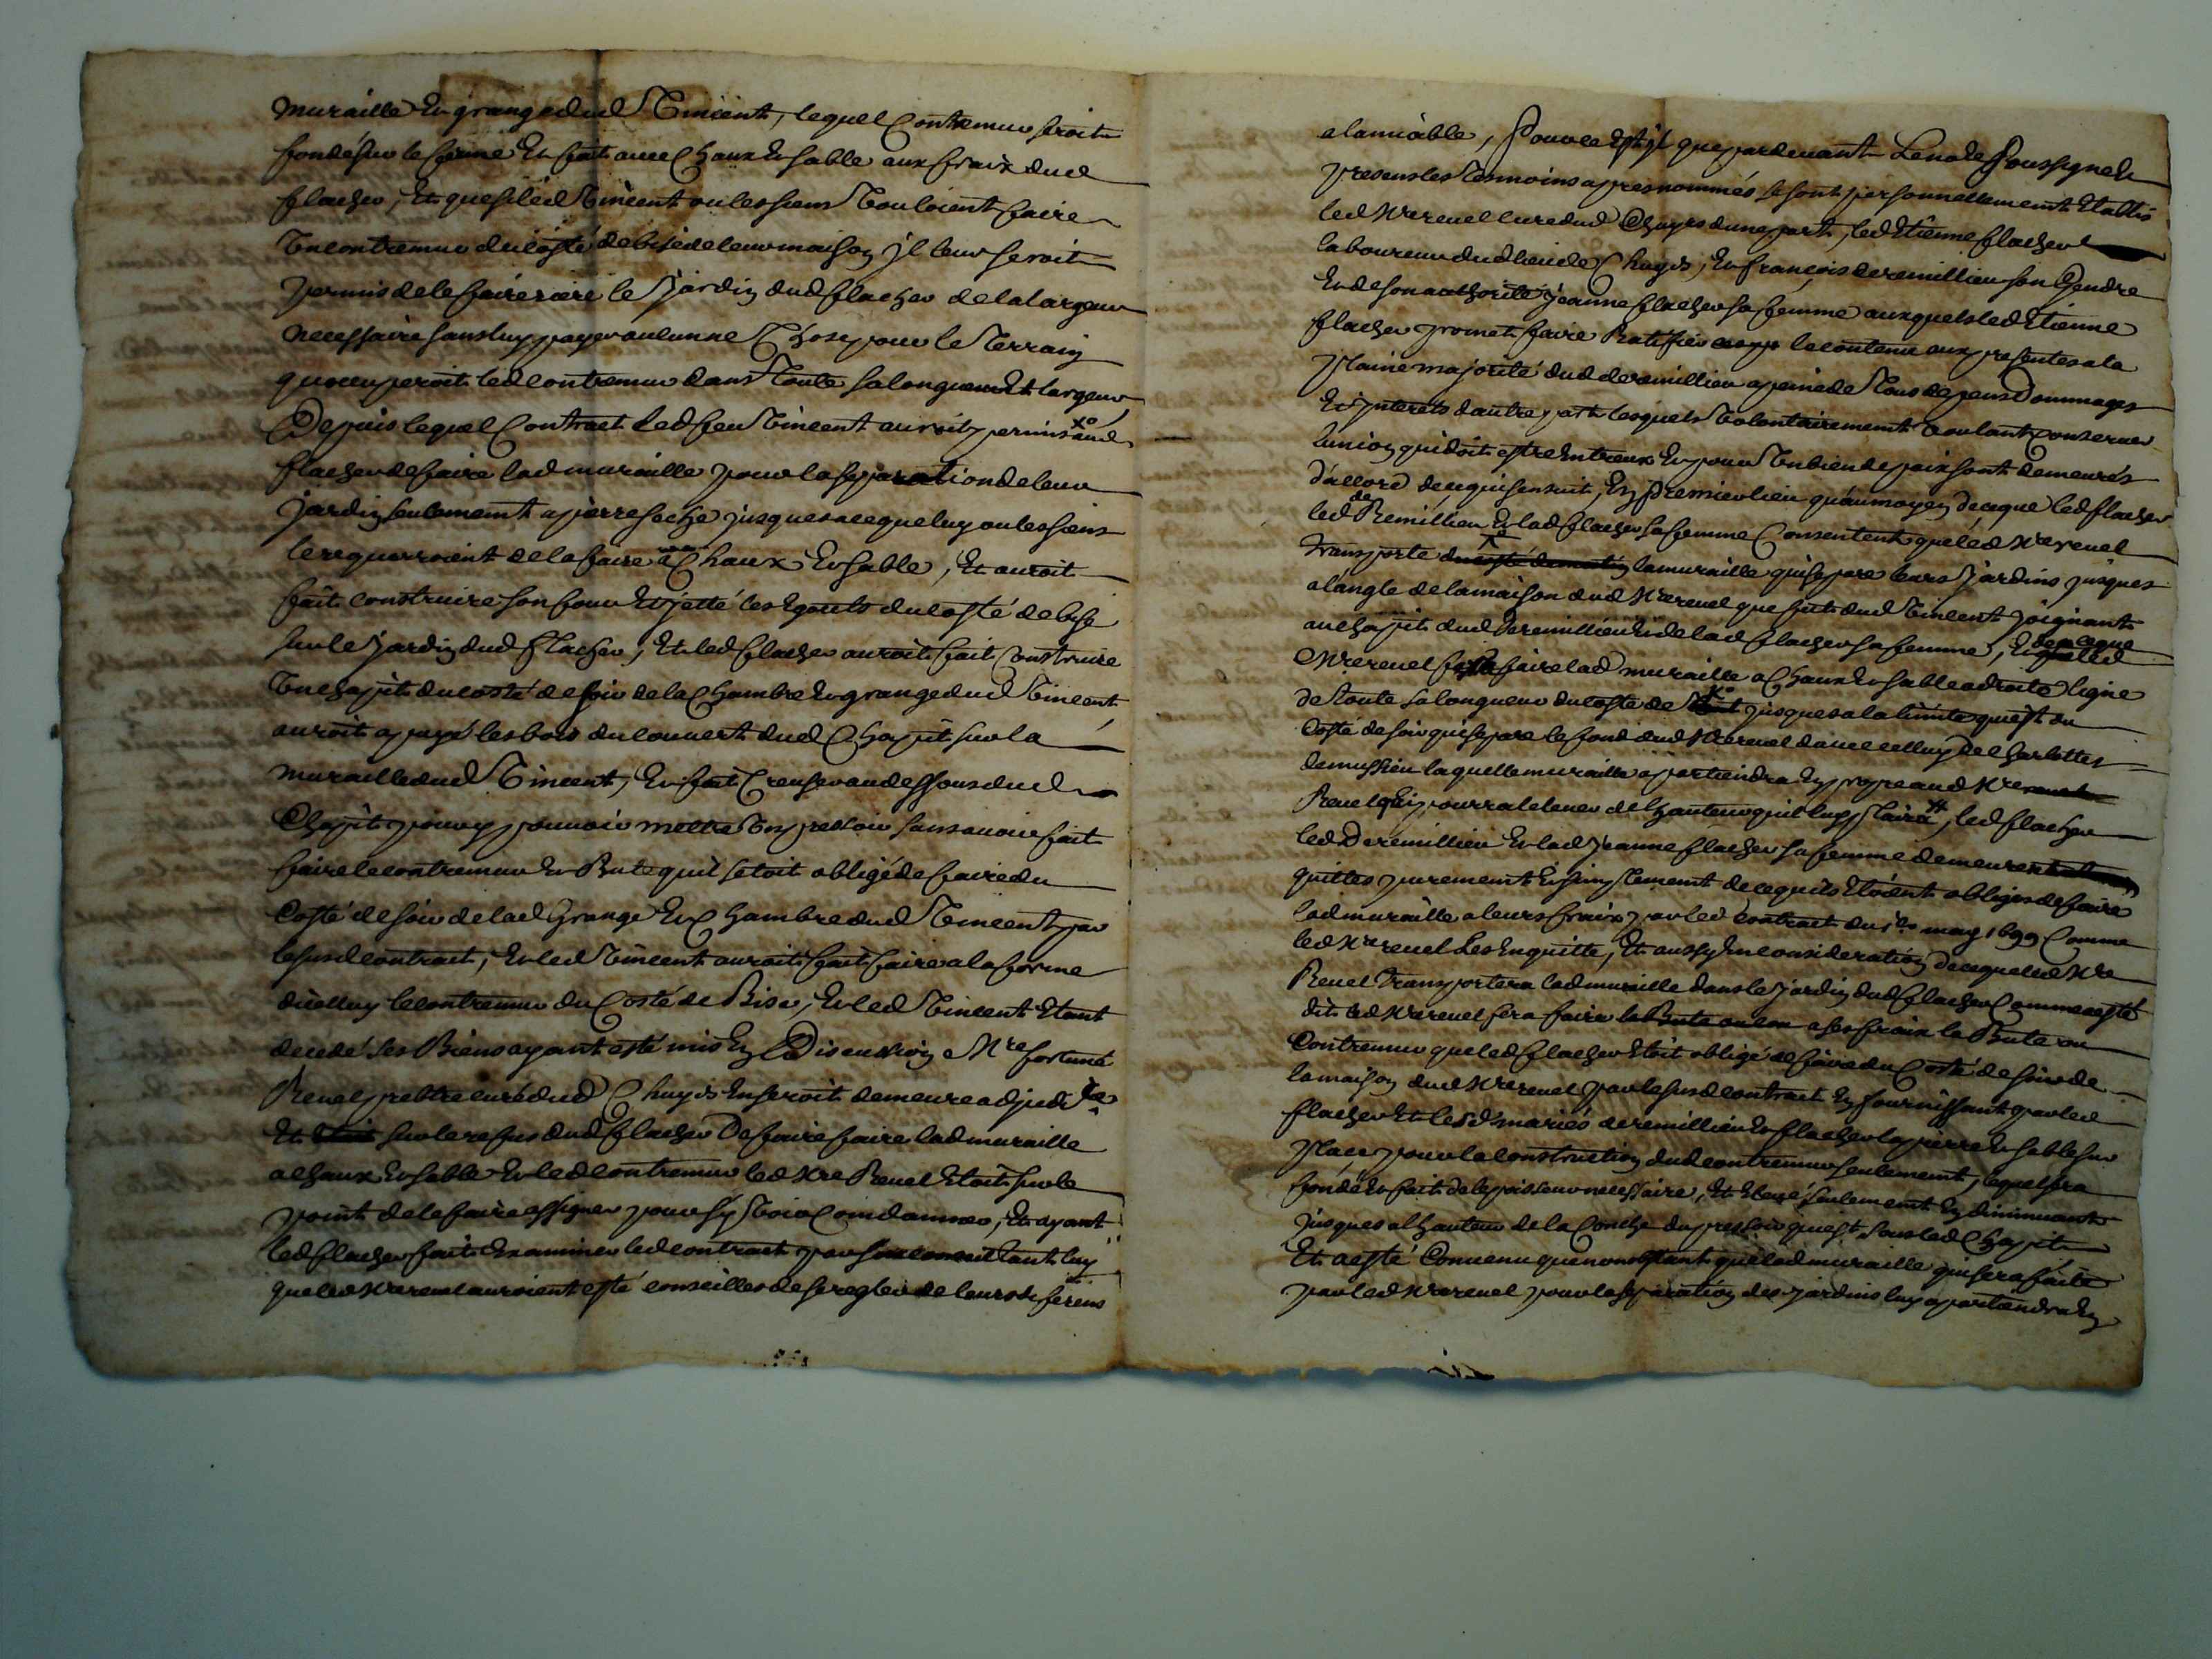 muraille Et grange dud Vincent, lequel Contremur seroit
fondé sur le ferme Et fait avec Chaux Et sable aux fraix dud
flacher, Et que si led Vincent ou les siens Vouloient faire
Vn contremur du costé de bise de leur maison jl leur seroit
permis de le faire riere le jardin dud flacher de la largeur
necessaire sans luy payer aulcune Chose pour le Terrain
quoccuperoit led contremur dans Toute sa longueur Et largeur
Depuis lequel Contract led feu Vincent auroit permis aud
flacher de faire lad muraille pour la separation de leur
jardin seulement a pierre seche jusques a ce que luy ou les siens
le requerroient de la faire a Chaux Et sable, Et auroit
fait construire son four Et jetté les Egouts du costé de bise
sur le jardin dud flacher, Et led flacher auroit fait Construire
Vn chapit du costé de soir de la Chambre Et grange dud Vincent
auroit apuyé les bois du couvert dud Chapit sur la
muraille dud Vincent, Et fait Creuser au dessous dud
Chapit pour y pouvoir mettre Vn pressoir sans avoir fait
faire le contremur Et Bute quil setoit obligé de faire du
Costé de soir de lad Grange Et Chambre dud Vincent par
le susd contract, Et led Vincent auroit fait faire a la forme
dicelluy le contremur du Costé de Bise, Et led Vincent Etant
decedé ses Biens ayant esté mis En Discution Mre fortuné
Revel prebtre curé dud Chuyes En seroit demeure adjudicre
Et sur le refus dud flacher De faire faire lad muraille
a chaux Et sable Et led contremur led Mre Revel Etoit sur le
point de le faire assigner pour sy Voir Condamner, Et ayant
led flacher fait Examiner led contract par son conseil tant luy
que led Mre revel auroient esté conseilles de se regler de leurs diferens
a lamiable, Pour ce Est jl que pardevant Le nore Soussigné Et
presens les Temoins apres nommés se sont personnellement Etablis
led Mre revel cure dud Chuyes dune part, led Etienne flacher
laboureur dud lieu de Chuyes, Et françois deremillieu son Gendre
Et de son authorité jeanne flacher sa femme auxquels led Etienne
flacher promet faire Ratifier le contenu aux presentes a la
plaine majorité dud deremillieu a peine de Tous depens Dommages
Et jnterets dautre part lesquels Volontairement Voulant conserver
lunion qui doit estre Entreux Et pour Vn bien de paix sont demeurés
daccord de ce qui sensuit, En premier lieu quau moyen de ce que led flacher
led de Remillieu Et lad flacher sa femme Consentent que led Mre revel
transporte du costé de matin la muraille qui separe leurs jardins jusques
a langle de la maison dud Mre revel que fut dud Vincent joignant
au chapit dud deremillieu Et de lad flacher sa femme, Et de ce que
Mre revel faire lad muraille a Chaux Et sable a droite ligne
de Toute sa longueur du costé de jusques a la limite qui est du
Costé de soir qui separe le fond dud Mre revel davec celluy de Charlotte
demussieu laquelle muraille apartiendra En propre aud Mre
Revel qui pourra lelever de lhauteur quil luy plaira, led flacher
led Deremillieu Et lad jeanne flacher sa femme demeurent
quittes purement Et simplement de ce quils Etoient obliges de faire
lad muraille a leurs fraix par led contract du may 1699 Comme
led Mre revel Les En quitte, Et aussy En consideration de ce que led Mre
Revel Transportera lad muraille dans le jardin dud flacher Comme a esté
dit led Mre revel fera faire la Bute ou a ses fraix la Bute ou
Contremur que led flacher Etoit obligé de faire du Costé de soir de
la maison dud Mre revel par le susd contract En fournissant par led
flacher Et lesd mariés deremillieu Et flacher la pierre Et sable sur
place pour la construction dud contremur seulement, lequel sera
fondé Et fait de lepaisseur necessaire, Et Elevé seulement En diminuant
jusques a lhauteur de la Conche du pressoir qui est sous led Chapit
Et a esté Convenu que nonobstant que lad muraille qui sera faite
par led Mre revel pour la separation des jardins luy apartiendra En